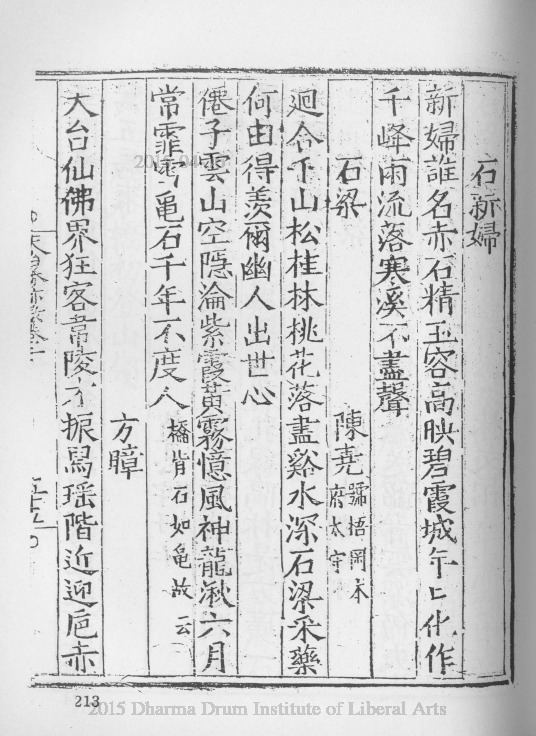 石新婦
新婦誰名赤石精玉容高映碧霞城年匕化作
千峰雨流落寒溪不盡聲
石梁 陳堯 號梧岡本府太守
迴合千山松桂林桃花落盡谿水深石梁采藥
何由得羨爾幽人出世心
僊子雲山空隱淪紫霞黃霧憶風神龍湫六月
常霏雪亀石千年不度人 橋背石如亀故云
方瞕
大台仙佛界狂客常陵才振舄瑶階近迎巵赤
213
2015 Dharma Drum Institute of Liberal Arts